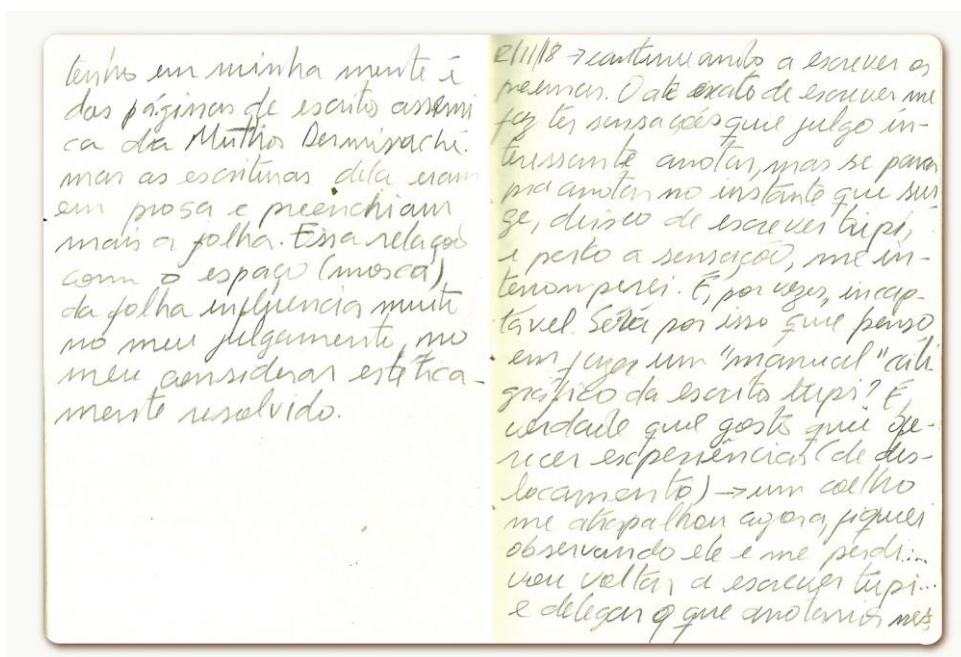 tenho em minha mente é
das páginas de escrita assêmi
ca da Mirtha Dermisache.
mas as escrituras dela eram
em prosa e preenchiam
mais a folha. Essa relação
com o espaço (mosca)
da folha influencia muito
no meu julgamento, no
meu considerar estetica-
mente resolvido.
2/11/18 → continuando a escrever os
poemas. O ato exato de escrever me
faz ter sensações que julgo in-
teressante anotar, mas se paro
pra anotar no instante que sur
ge, deixo de escrever tupi,
e perco a sensação, me in-
terromperei. É, por vezes, incap-
tável. Será por isso que penso
em fazer um "manual" cali
gráfico da escrita tupi? É
verdade que gosto que ofe-
recer experiências (de des-
locamento) → um coelho
me atrapalhou agora, fiquei
observando ele e me perdi...
vou voltar a escrever tupi...
e delegar o que anotaria